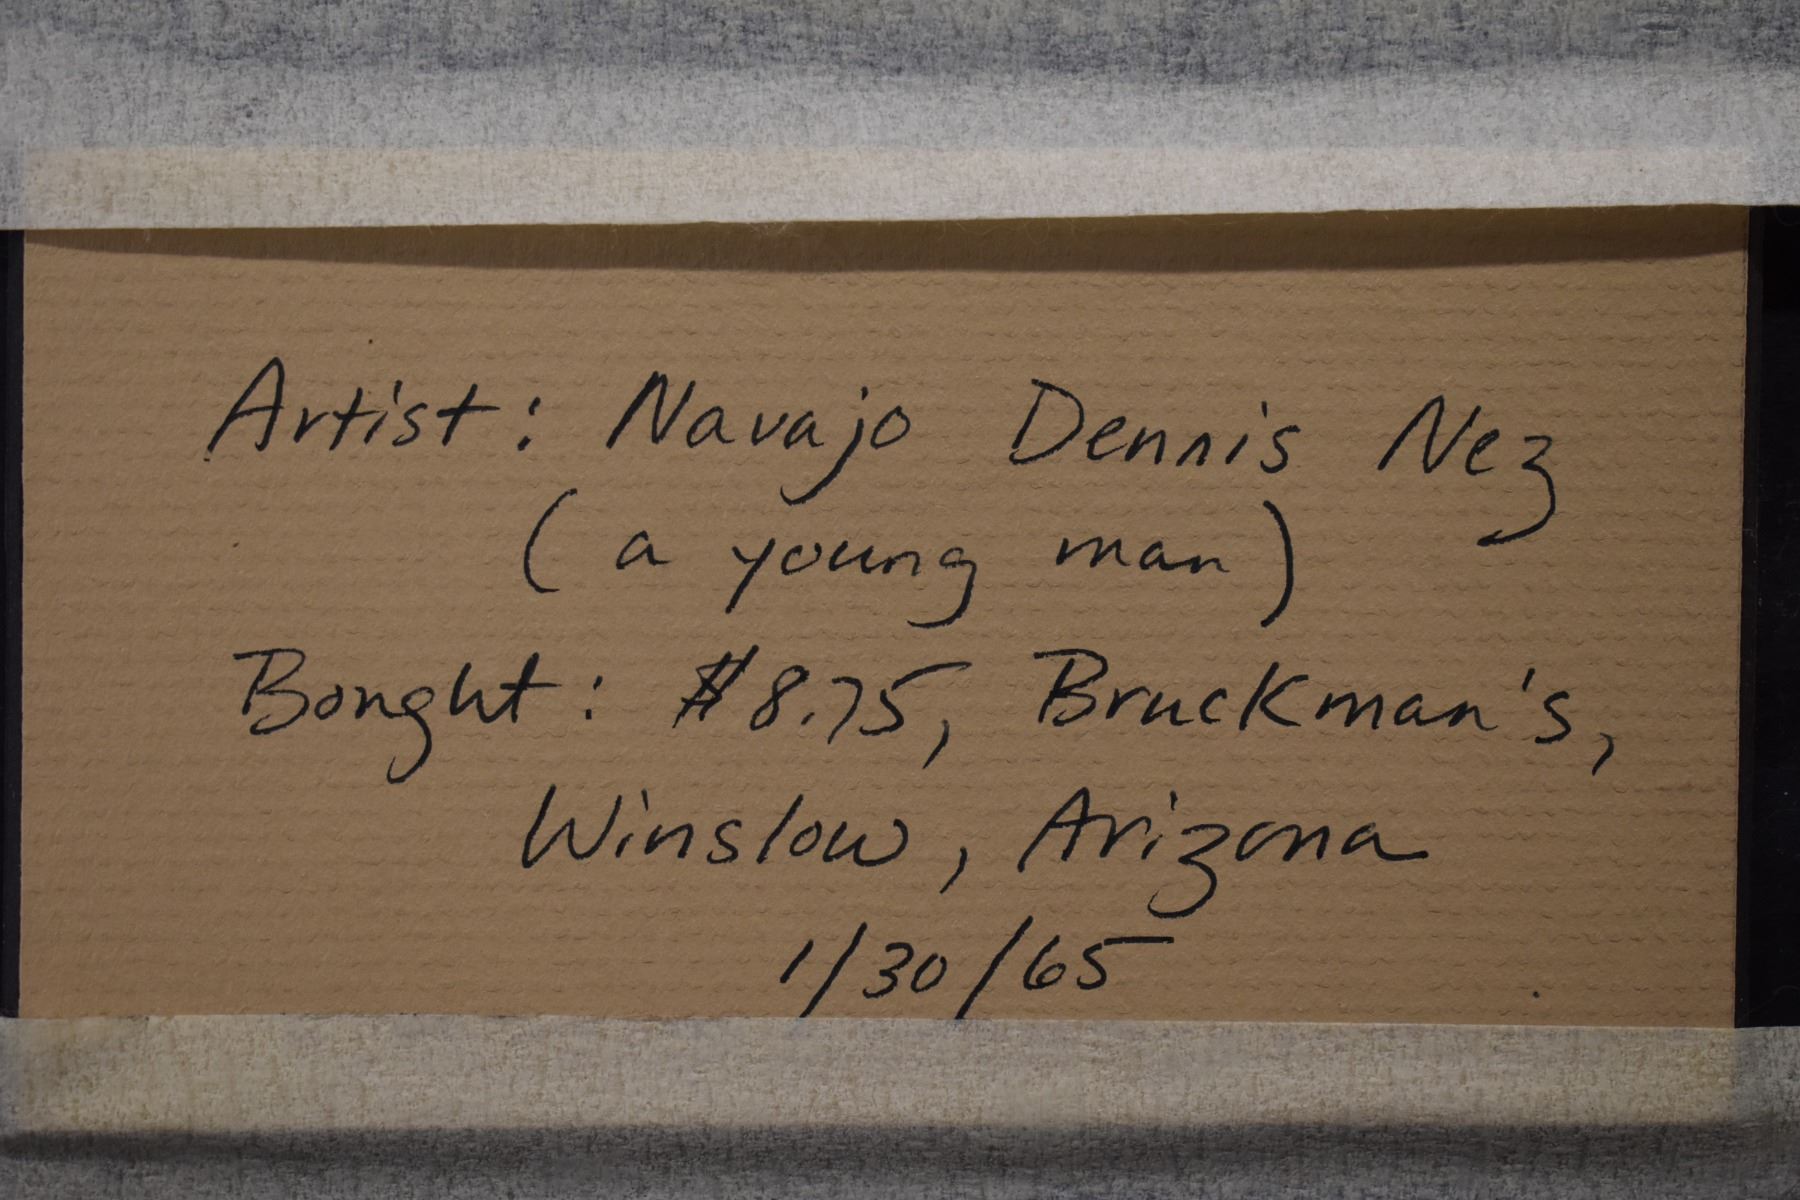 Artist: Navajo Dennis Nez
(a young man)
Bought: $8.75, Bruckman's,
Winslow, Arizona
1/30/65